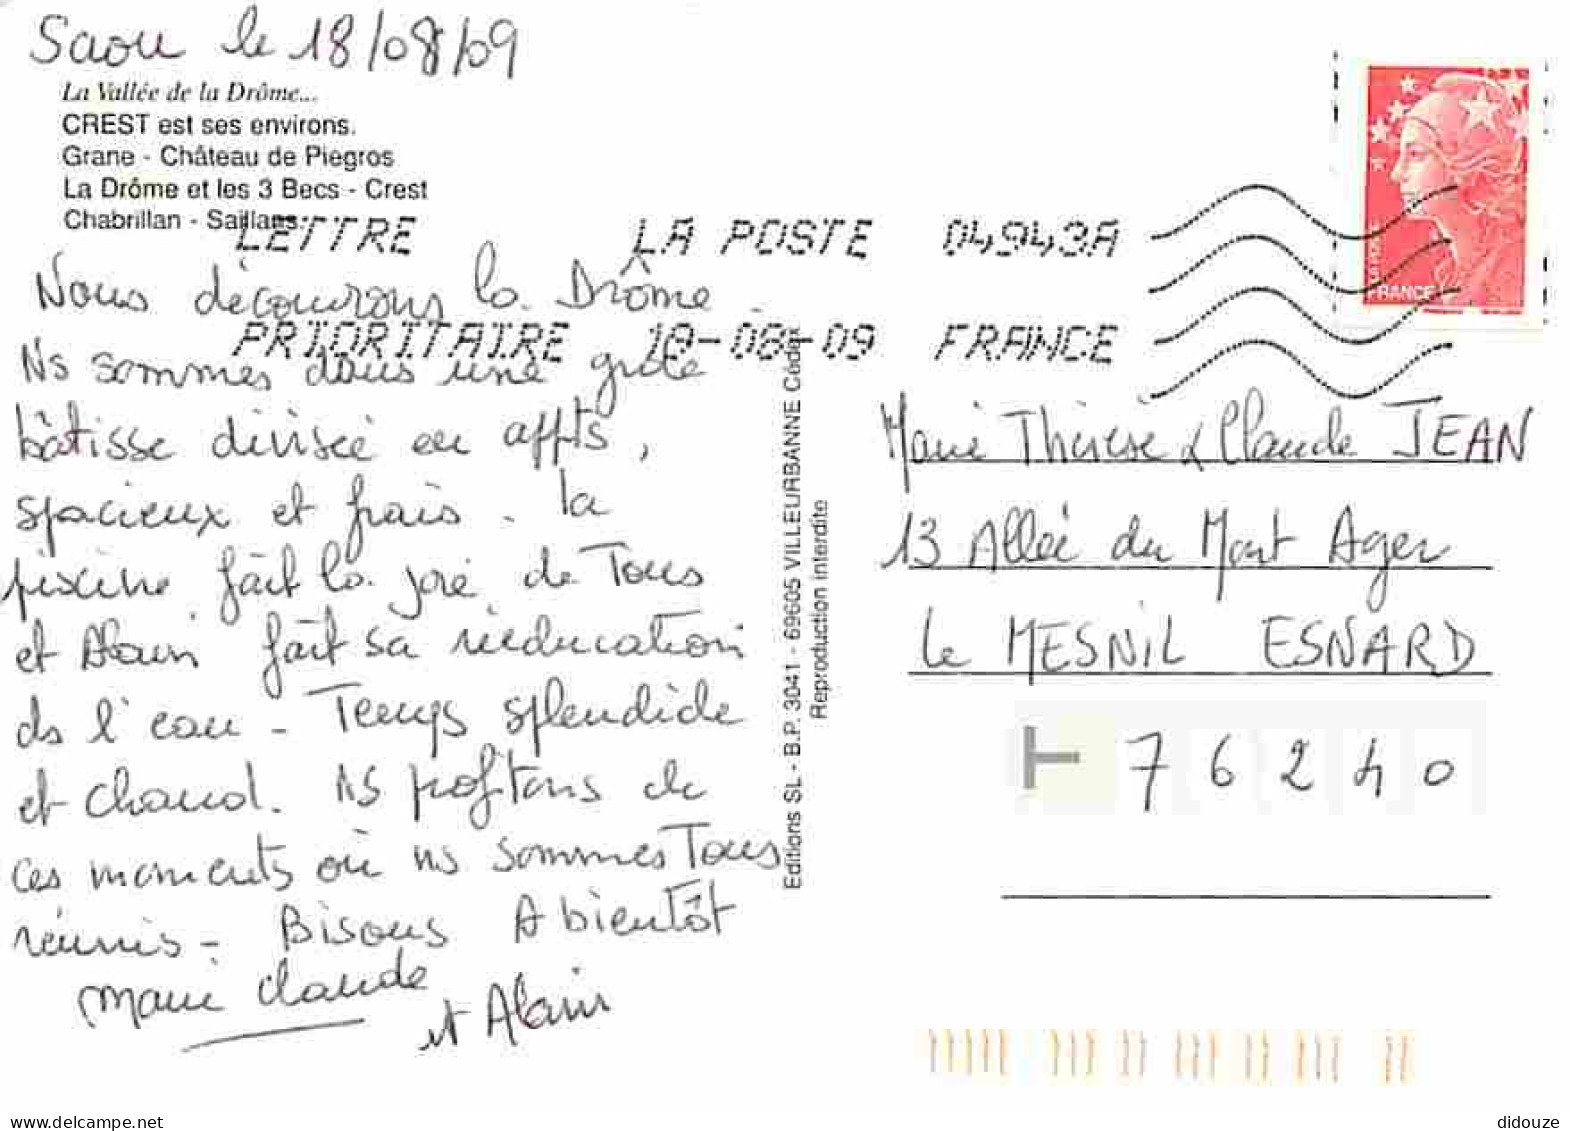 Saou le 18/08/09
La Vallée de la Drôme...
CREST est ses environs.
Grane - Château de Piegros
La Drôme et les 3 Becs - Crest
Chabrillan - Saillans.
LETTRE LA POSTE 04943A
PRIORITAIRE 19-08-09 FRANCE
Nous découvrons la Drôme.
Ns sommes dans une grde
bâtisse divisée en appts,
spacieux et frais. la
piscine fait la joie de Tous
et Alain fait sa rééducation
ds l'eau - Temps splendide
et chaud. Ns profitons de
ces moments où ns sommes Tous
réunis - Bisous A bientôt
Marie Claude
et Alain
Editions SL - B.P. 3041 - 69605 VILLEURBANNE Cédex
Reproduction interdite
LA POSTE
FRANCE
Marie Thérèse & Claude JEAN
13 Allée du Mont Ager
Le MESNIL ESNARD
76240
delcampe.net
didouze